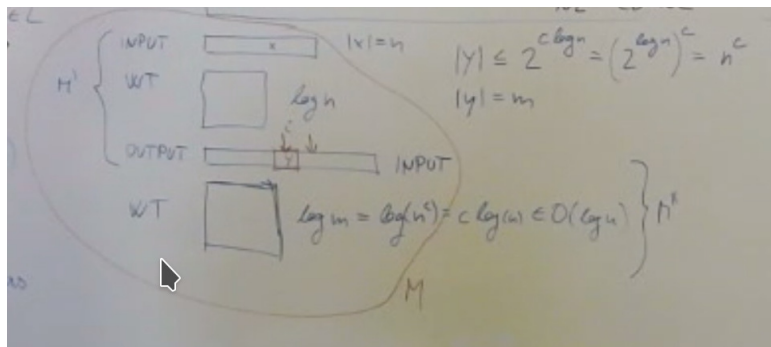 ∈ L
INPUT x |x| = n
M' WT log n
OUTPUT Y INPUT
WT log m = log(n^c) = c log(n) ∈ O(log n) } M"
M
|Y| ≤ 2^{c log n} = (2^{log n})^c = n^c
|y| = m